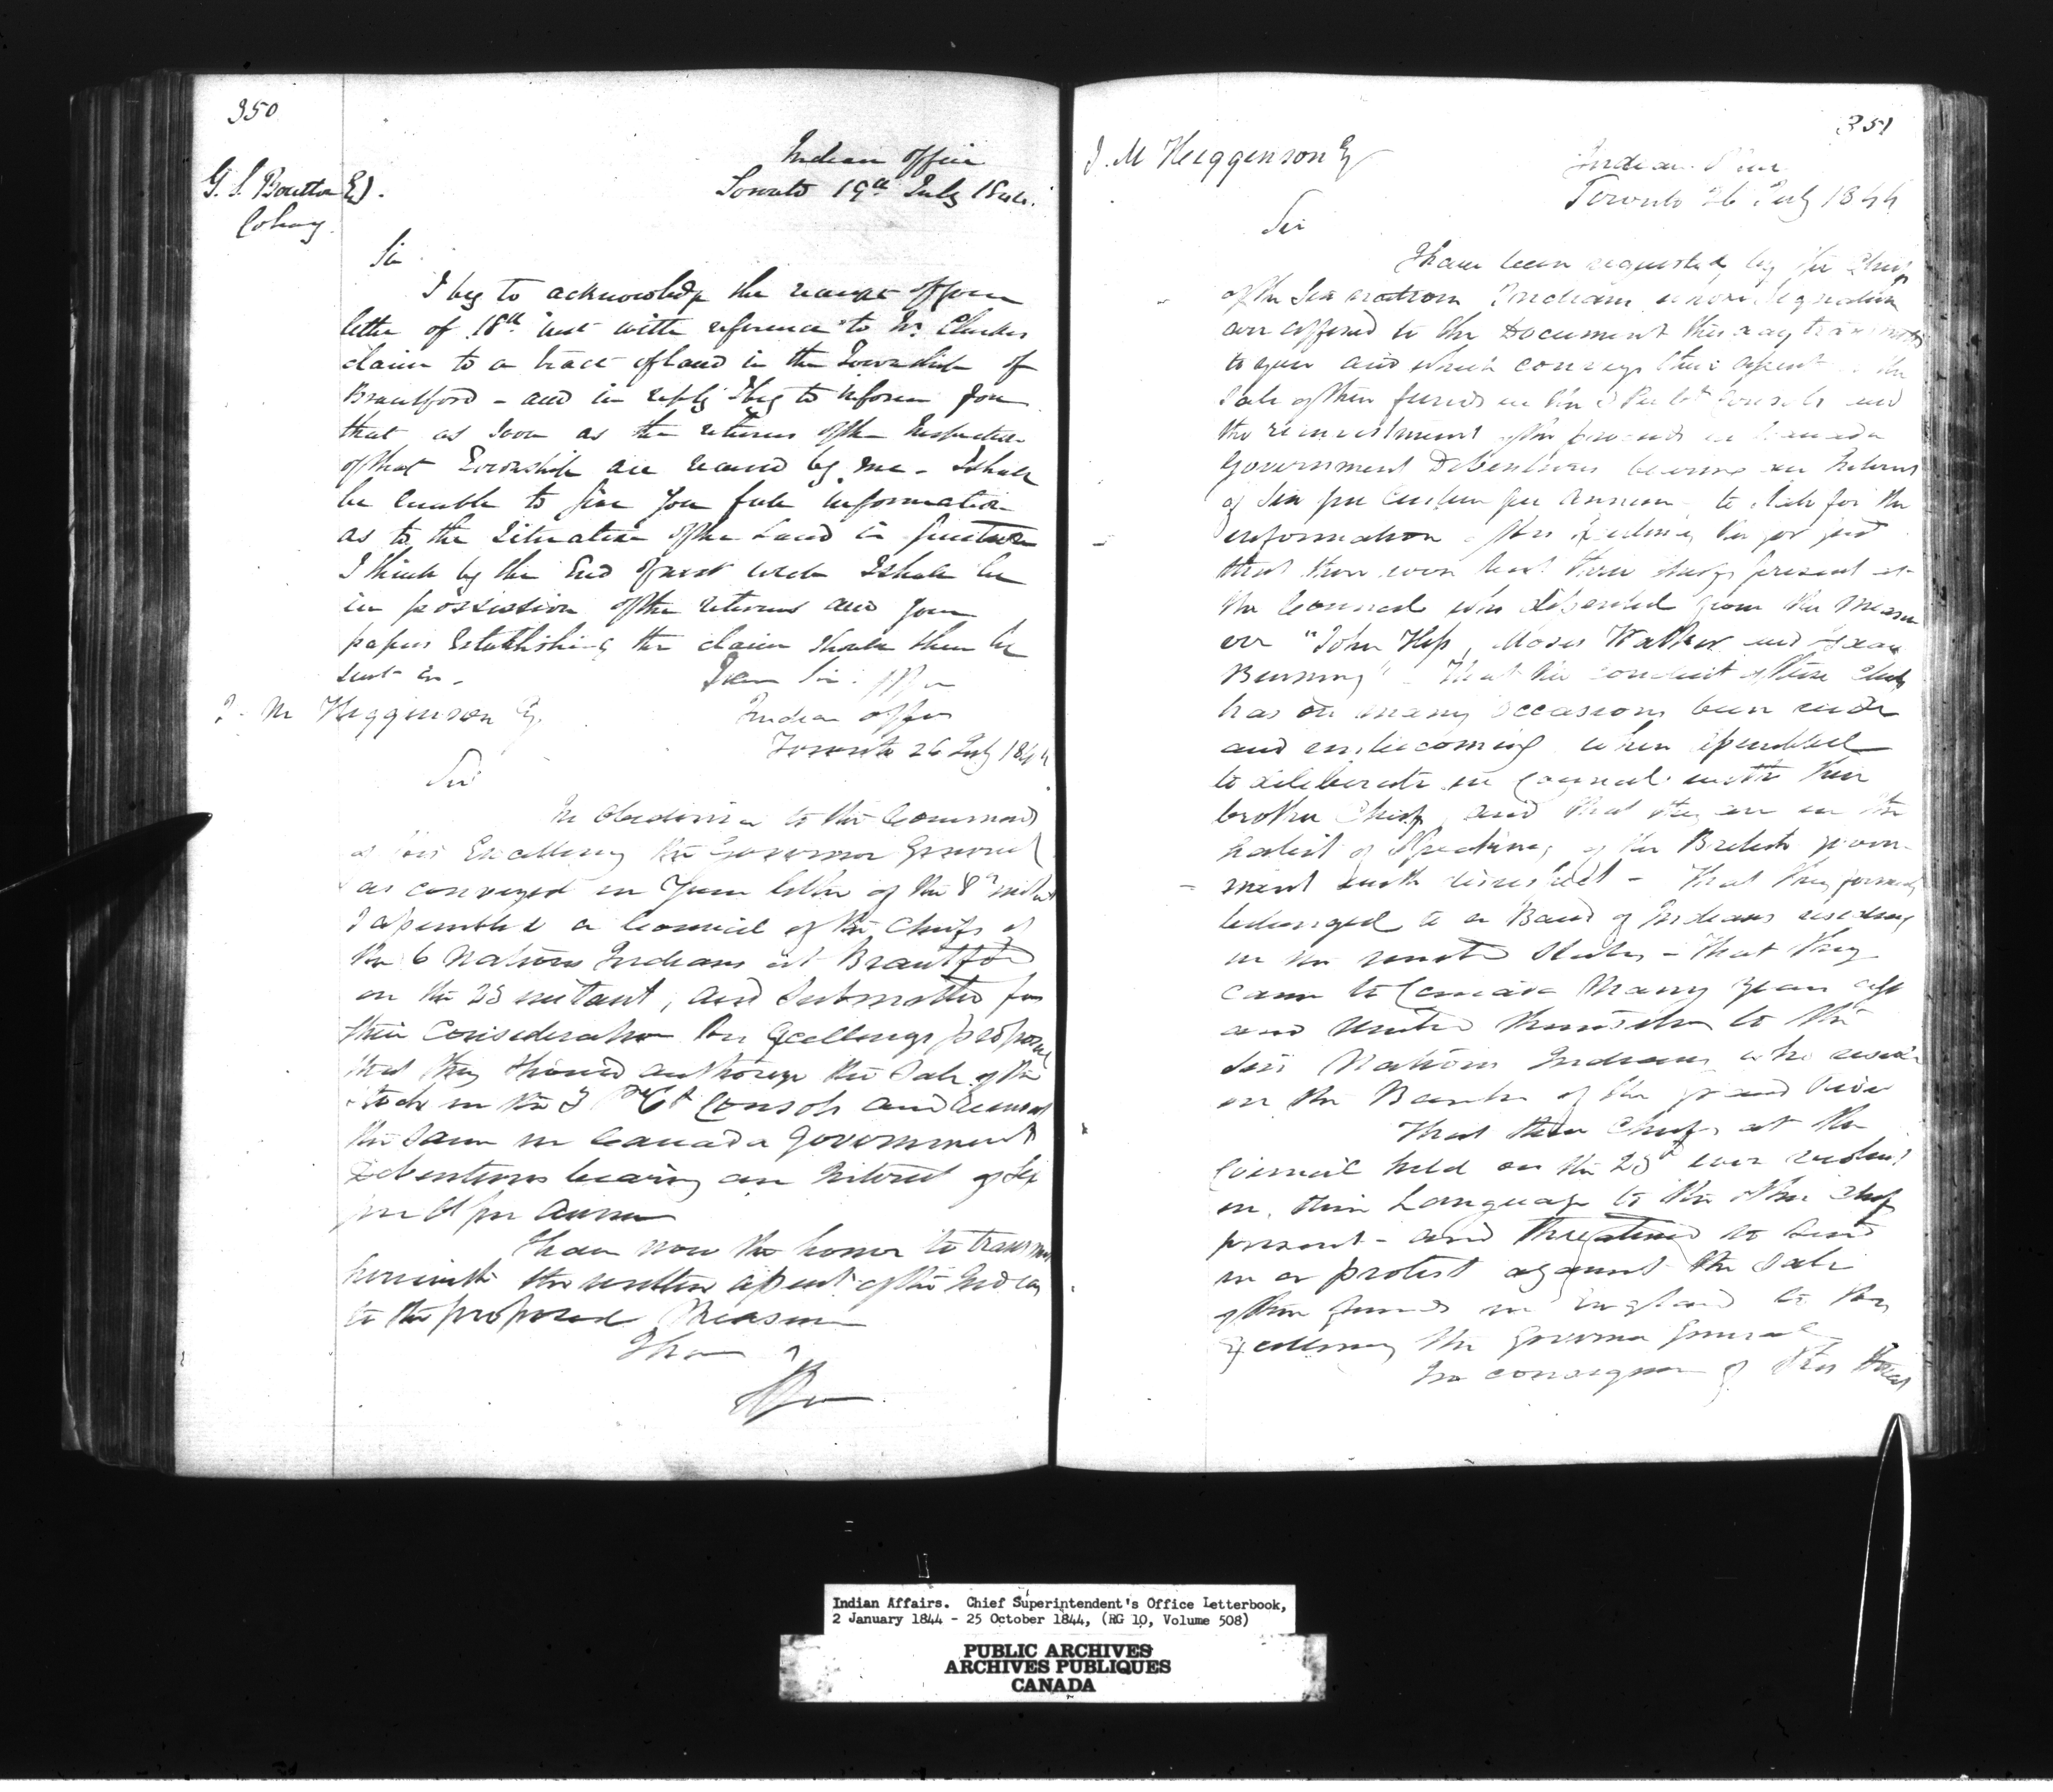 350
Indian Office
Toronto 19th July 1844.
G. S. Boulton Esq.
Cobourg.
Sir
I beg to acknowledge the receipt of your
letter of 18th inst with reference to Mr.
claim to a tract of land in the Township of
Brantford - and in reply I beg to inform you
that as soon as the returns of the Inspection
of that Township are received by me - I shall
be enable to give you full information
as to the situation of the Land in question
I think by the End of next week I shall be
in possession of the returns and your
papers Establishing the claim should then be
sent in.
J. M Higginson Esq.
Indian Office
Toronto 26 July 1844
Sir
In obedience to the Command
of his Excellency the Governor General
as conveyed in Your letter of the 8th instant
I assembled a Council of the Chiefs of
the 6 Nations Indians at Brantford
on the 23 instant, and submitted for
their consideration his Excellencys proposal
that they should authorize the Sale of the
Stock in the 3 per Ct Consols and reinvest
the same in Canada Government
Debentures bearing an Interest of Six
per Ct per annum
I have now the honor to transmit
herewith the written assent of the Indians
to the proposed Measure
I have
351
J. M Higginson Esq
Indian Office
Toronto 26 July 1844
Sir
I have been requested by the Chiefs
of the Six nations Indians whose signatures
are affixed to the Document this day transmitted
to you and which conveys their assent to the
Sale of their funds in the 3 Per Ct Consols and
the reinvestment of the proceeds in Canada
Government Debentures bearing an Interest
of Six per Centum per annum, to state for the
information of His Excellency the
that there were but three chiefs present at
the Council who dissented from the measure
viz "John Hess, Moses Walker and Isaac
Burning" - That the conduct of these Chiefs
has on many occasions been rude
and unbecoming when assembled
to deliberate in Council with their
brother Chiefs, and that they are in the
habit of speaking of the British govern-
ment with disrespect - That they formerly
belonged to a Band of Indians residing
in the United States - that they
came to Canada Many years ago
and united themselves to the
Six Nations Indians who reside
on the Banks of the Grand River
That these Chiefs at the
Council held on the 23d were violent
in their Language to the other Chiefs
present - and threatened to send
in a protest against the Sale
of their funds in England to His
Excellency the Governor General
In consequence of this threat
Indian Affairs. Chief Superintendent's Office Letterbook,
2 January 1844 - 25 October 1844, (RG 10, Volume 508)
PUBLIC ARCHIVES
ARCHIVES PUBLIQUES
CANADA